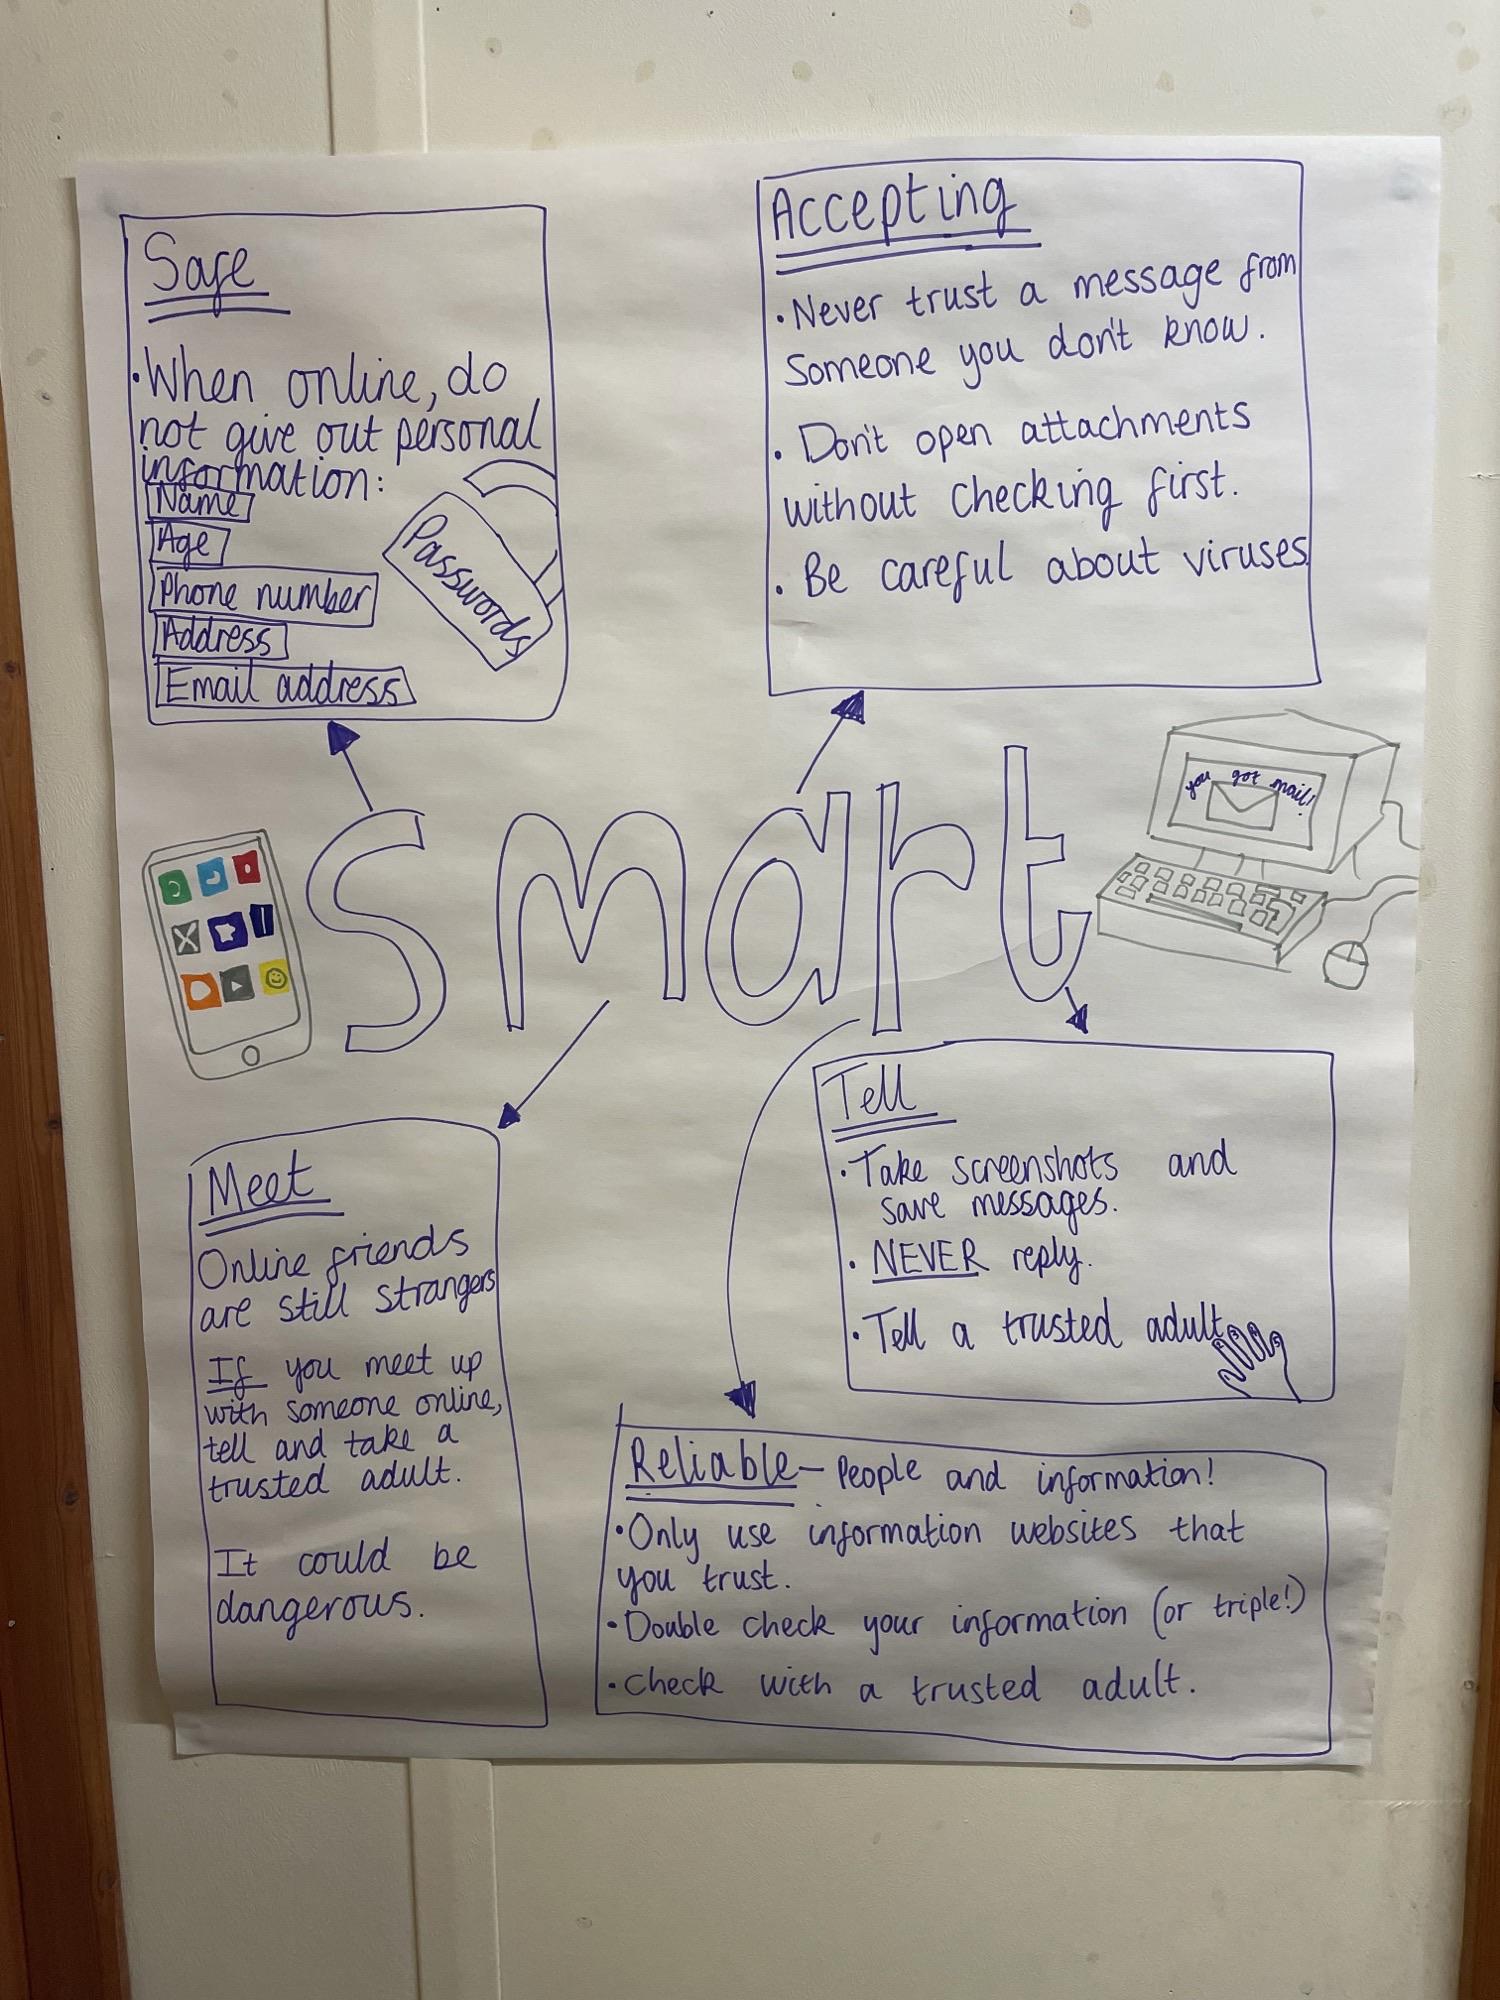 Safe
·When online, do
not give out personal
information:
Name
Age
Phone number
Address
Email address
Passwords
Accepting
·Never trust a message from
Someone you don't know.
·Don't open attachments
without checking first.
·Be careful about viruses
Smart
you got mail!
Meet
Online friends
are still strangers
If you meet up
with someone online,
tell and take a
trusted adult.
It could be
dangerous.
Tell
·Take screenshots and
save messages.
·NEVER reply.
·Tell a trusted adult
Reliable – People and information!
·Only use information websites that
you trust.
·Double check your information (or triple!)
·Check with a trusted adult.